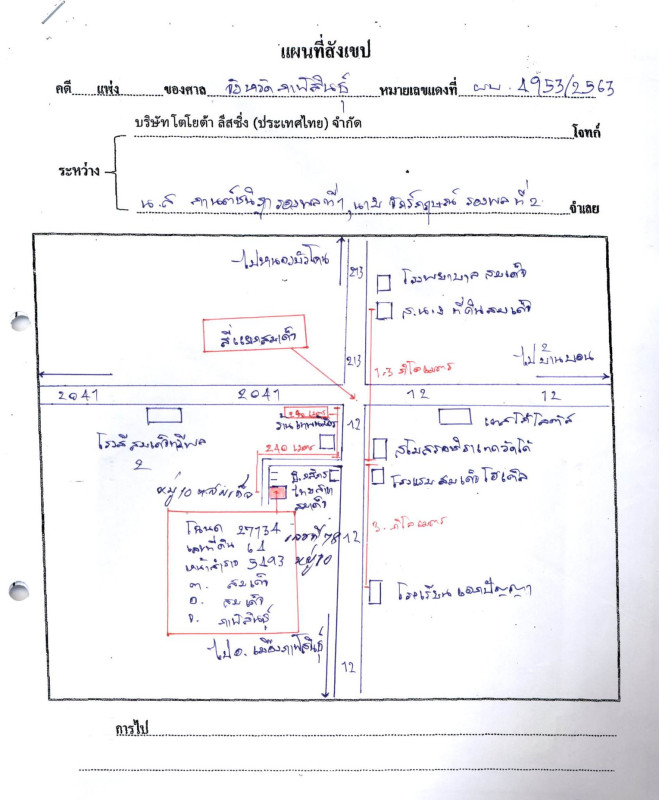 แผนที่สังเขป
คดี แพ่ง ของศาล จังหวัดกาฬสินธุ์ หมายเลขแดงที่ ผบ. 4953/2563
บริษัท โตโยต้า ลีสซิ่ง (ประเทศไทย) จำกัด โจทก์
ระหว่าง
น.ส. รองพลที่ 1, นาย รองพลที่ 2 จำเลย
ไปหนองบัวโดน
213
โรงพยาบาลสมเด็จ
ส.น.ง ที่ดินสมเด็จ
สี่แยกสมเด็จ
213
1.3 กิโลเมตร
ไป บ้านบอน
2041 2041 12 12
เมตร
12
เทสโก้โลตัส
โรงสีสมเด็จทวีผล
2
240 เมตร
สโมสร
หมู่ 10 สมเด็จ
โรงแรมสมเด็จโฮเต็ล
ไทย
สมเด็จ
3. กิโลเมตร
โฉนด 27134 เลขที่ 78
เลขที่ดิน 64
12
หน้าสำรวจ 5493 หมู่ 10
ต. สมเด็จ
อ. สมเด็จ
จ. กาฬสินธุ์
โรงเรียน
ไปอ. เมืองกาฬสินธุ์
12
การไป